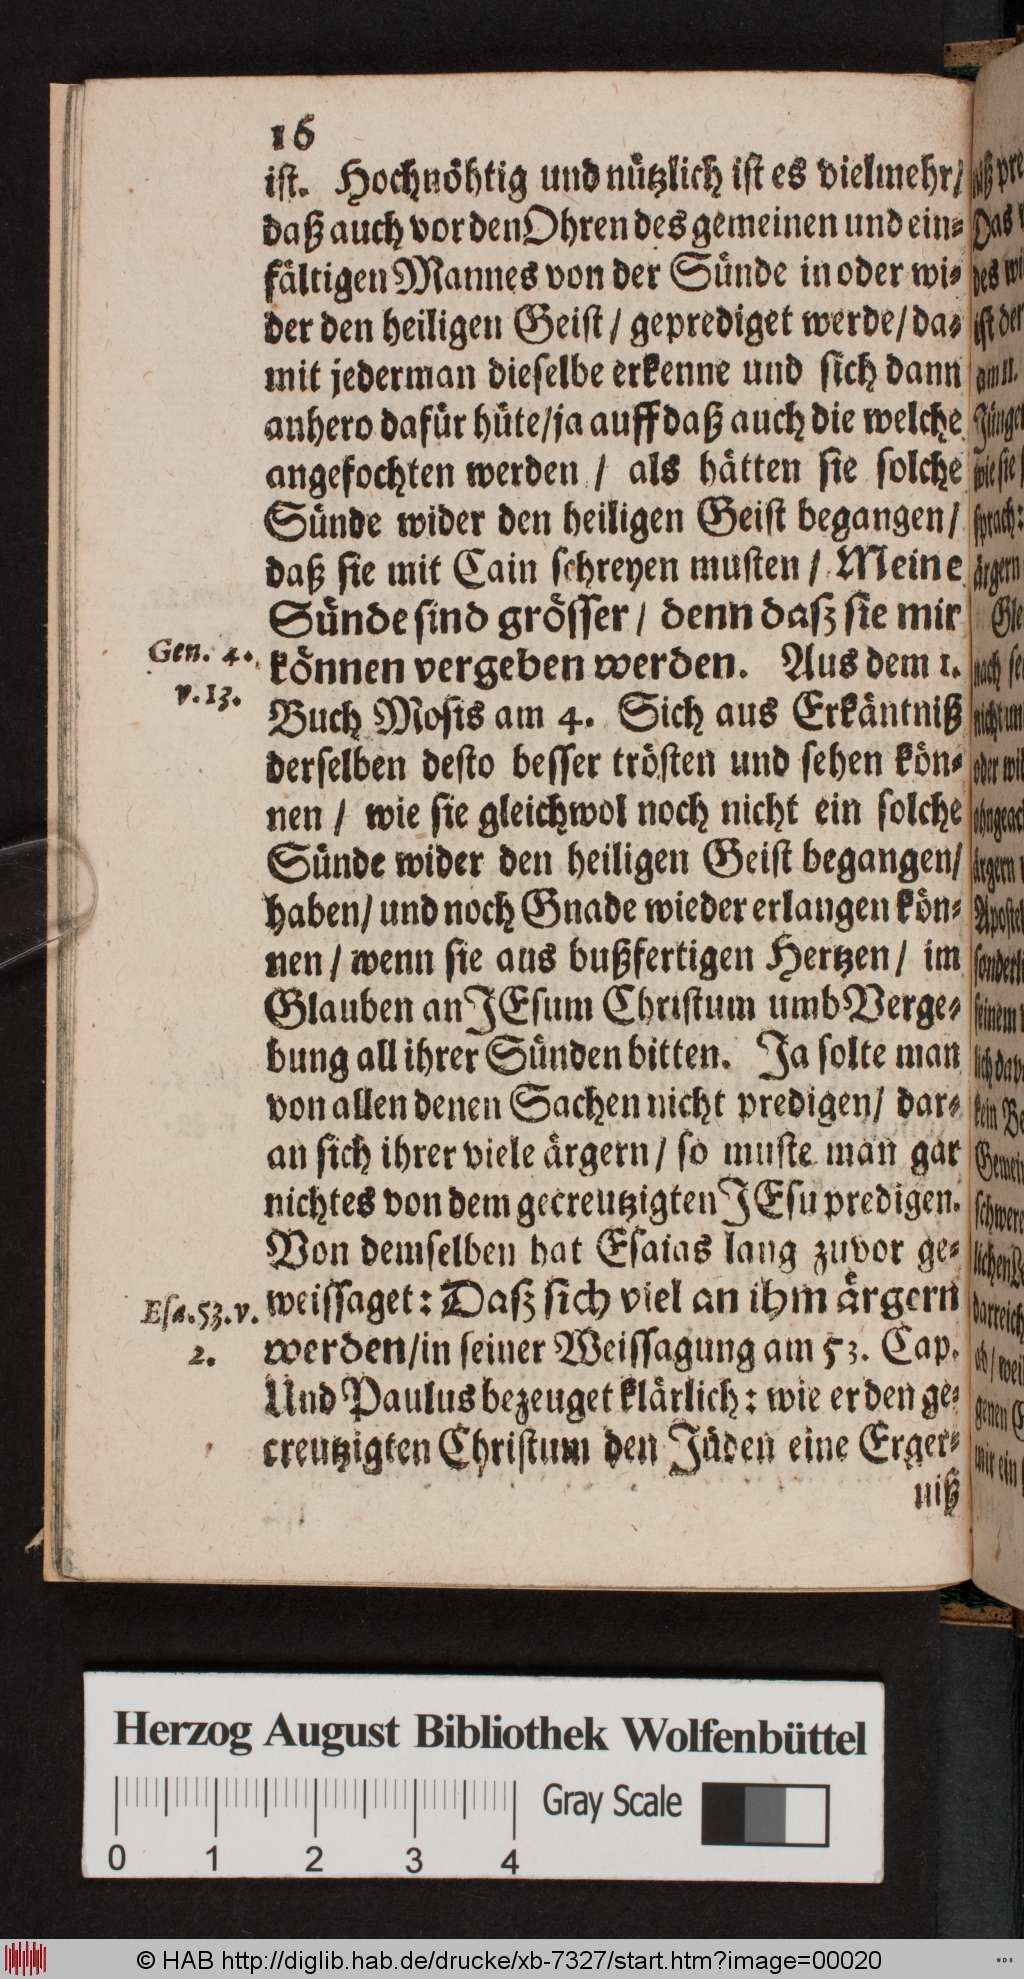 16
ist. Hochnöhtig und nützlich ist es vielmehr/
daß auch vor den Ohren des gemeinen und ein-
fältigen Mannes von der Sünde in oder wi-
der den heiligen Geist / geprediget werde/ da-
mit jederman dieselbe erkenne und sich dann
anhero dafür hüte/ja auff daß auch die welche
angefochten werden / als hätten sie solche
Sünde wider den heiligen Geist begangen/
daß sie mit Cain schreyen musten / Meine
Sünde sind grösser / denn daß sie mir
Gen. 4.
v. 13.
können vergeben werden. Aus dem 1.
Buch Mosis am 4. Sich aus Erkäntniß
derselben desto besser trösten und sehen kön-
nen / wie sie gleichwol noch nicht ein solche
Sünde wider den heiligen Geist begangen/
haben/ und noch Gnade wieder erlangen kön-
nen / wenn sie aus bußfertigen Hertzen / im
Glauben an JEsum Christum umb Verge-
bung all ihrer Sünden bitten. Ja solte man
von allen denen Sachen nicht predigen/ dar-
an sich ihrer viele ärgern/ so muste man gar
nichtes von dem gecreutzigten JEsu predigen.
Von demselben hat Esaias lang zuvor ge-
Esa. 53. v.
2.
weissaget: Daß sich viel an ihm ärgern
werden/in seiner Weissagung am 53. Cap.
Und Paulus bezeuget klärlich: wie er den ge-
creutzigten Christum den Jüden eine Erger-
niß
Herzog August Bibliothek Wolfenbüttel
Gray Scale
0 1 2 3 4
© HAB http://diglib.hab.de/drucke/xb-7327/start.htm?image=00020